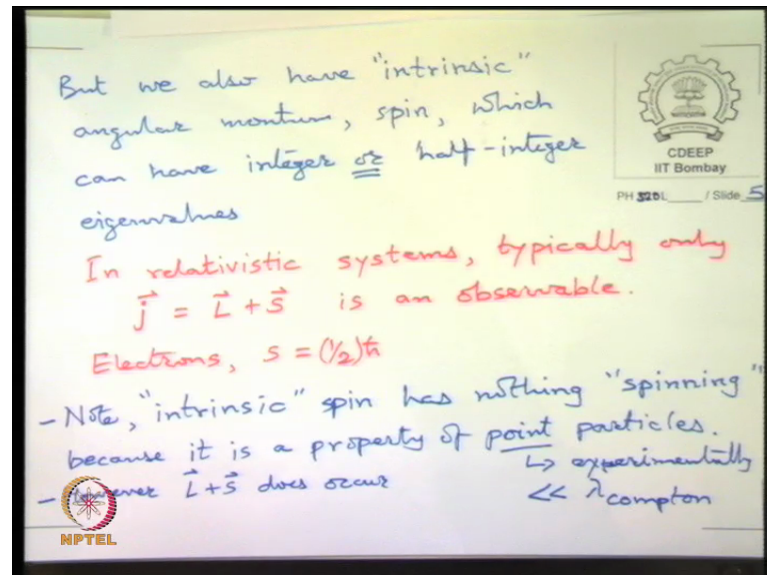 But we also have "intrinsic"
angular montum, spin, which
can have integer or half-integer
eigenvalues
CDEEP
IIT Bombay
PH 320L____ / Slide 5
In relativistic systems, typically only
j⃗ = L⃗ + S⃗ is an observable.
Electrons, s = (1/2)ħ
- Note, "intrinsic" spin has nothing "spinning"
because it is a property of point particles.
↳ experimentally
<< λcompton
- However L⃗+S⃗ does occur
NPTEL